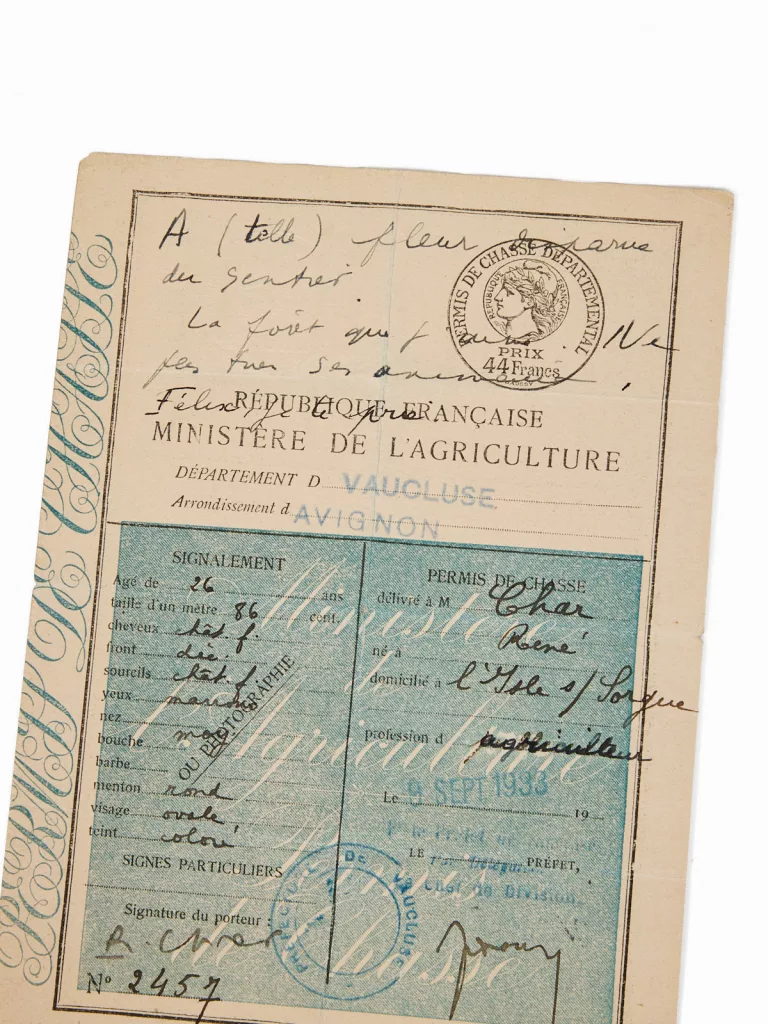 A (telle) fleur disparue
du sentier
La forêt que j'aime. Ne
pas tuer ses animaux,
Félix, je te prie
PERMIS DE CHASSE DÉPARTEMENTAL
RÉPUBLIQUE FRANÇAISE
PRIX
44 Francs
RÉPUBLIQUE FRANÇAISE
MINISTÈRE DE L'AGRICULTURE
DÉPARTEMENT D VAUCLUSE
Arrondissement d AVIGNON
PERMIS DE CHASSE
SIGNALEMENT
Agé de 26 ans
taille d'un mètre 86 cent.
cheveux chât. f.
front déc.
sourcils chât. f.
yeux marron
nez
bouche moy
barbe
menton rond
visage ovale
teint coloré
OU PHOTOGRAPHIE
SIGNES PARTICULIERS
Signature du porteur :
R. Char
N° 2457
PERMIS DE CHASSE
délivré à M Char
René
né à
domicilié à l'Isle s/ Sorgue
profession d agriculteur
Le 9 SEPT 1933 19
LE PRÉFET,
Chef de Division
PRÉFECTURE DE VAUCLUSE
Ministère
de
l'Agriculture
Permis
de Chasse